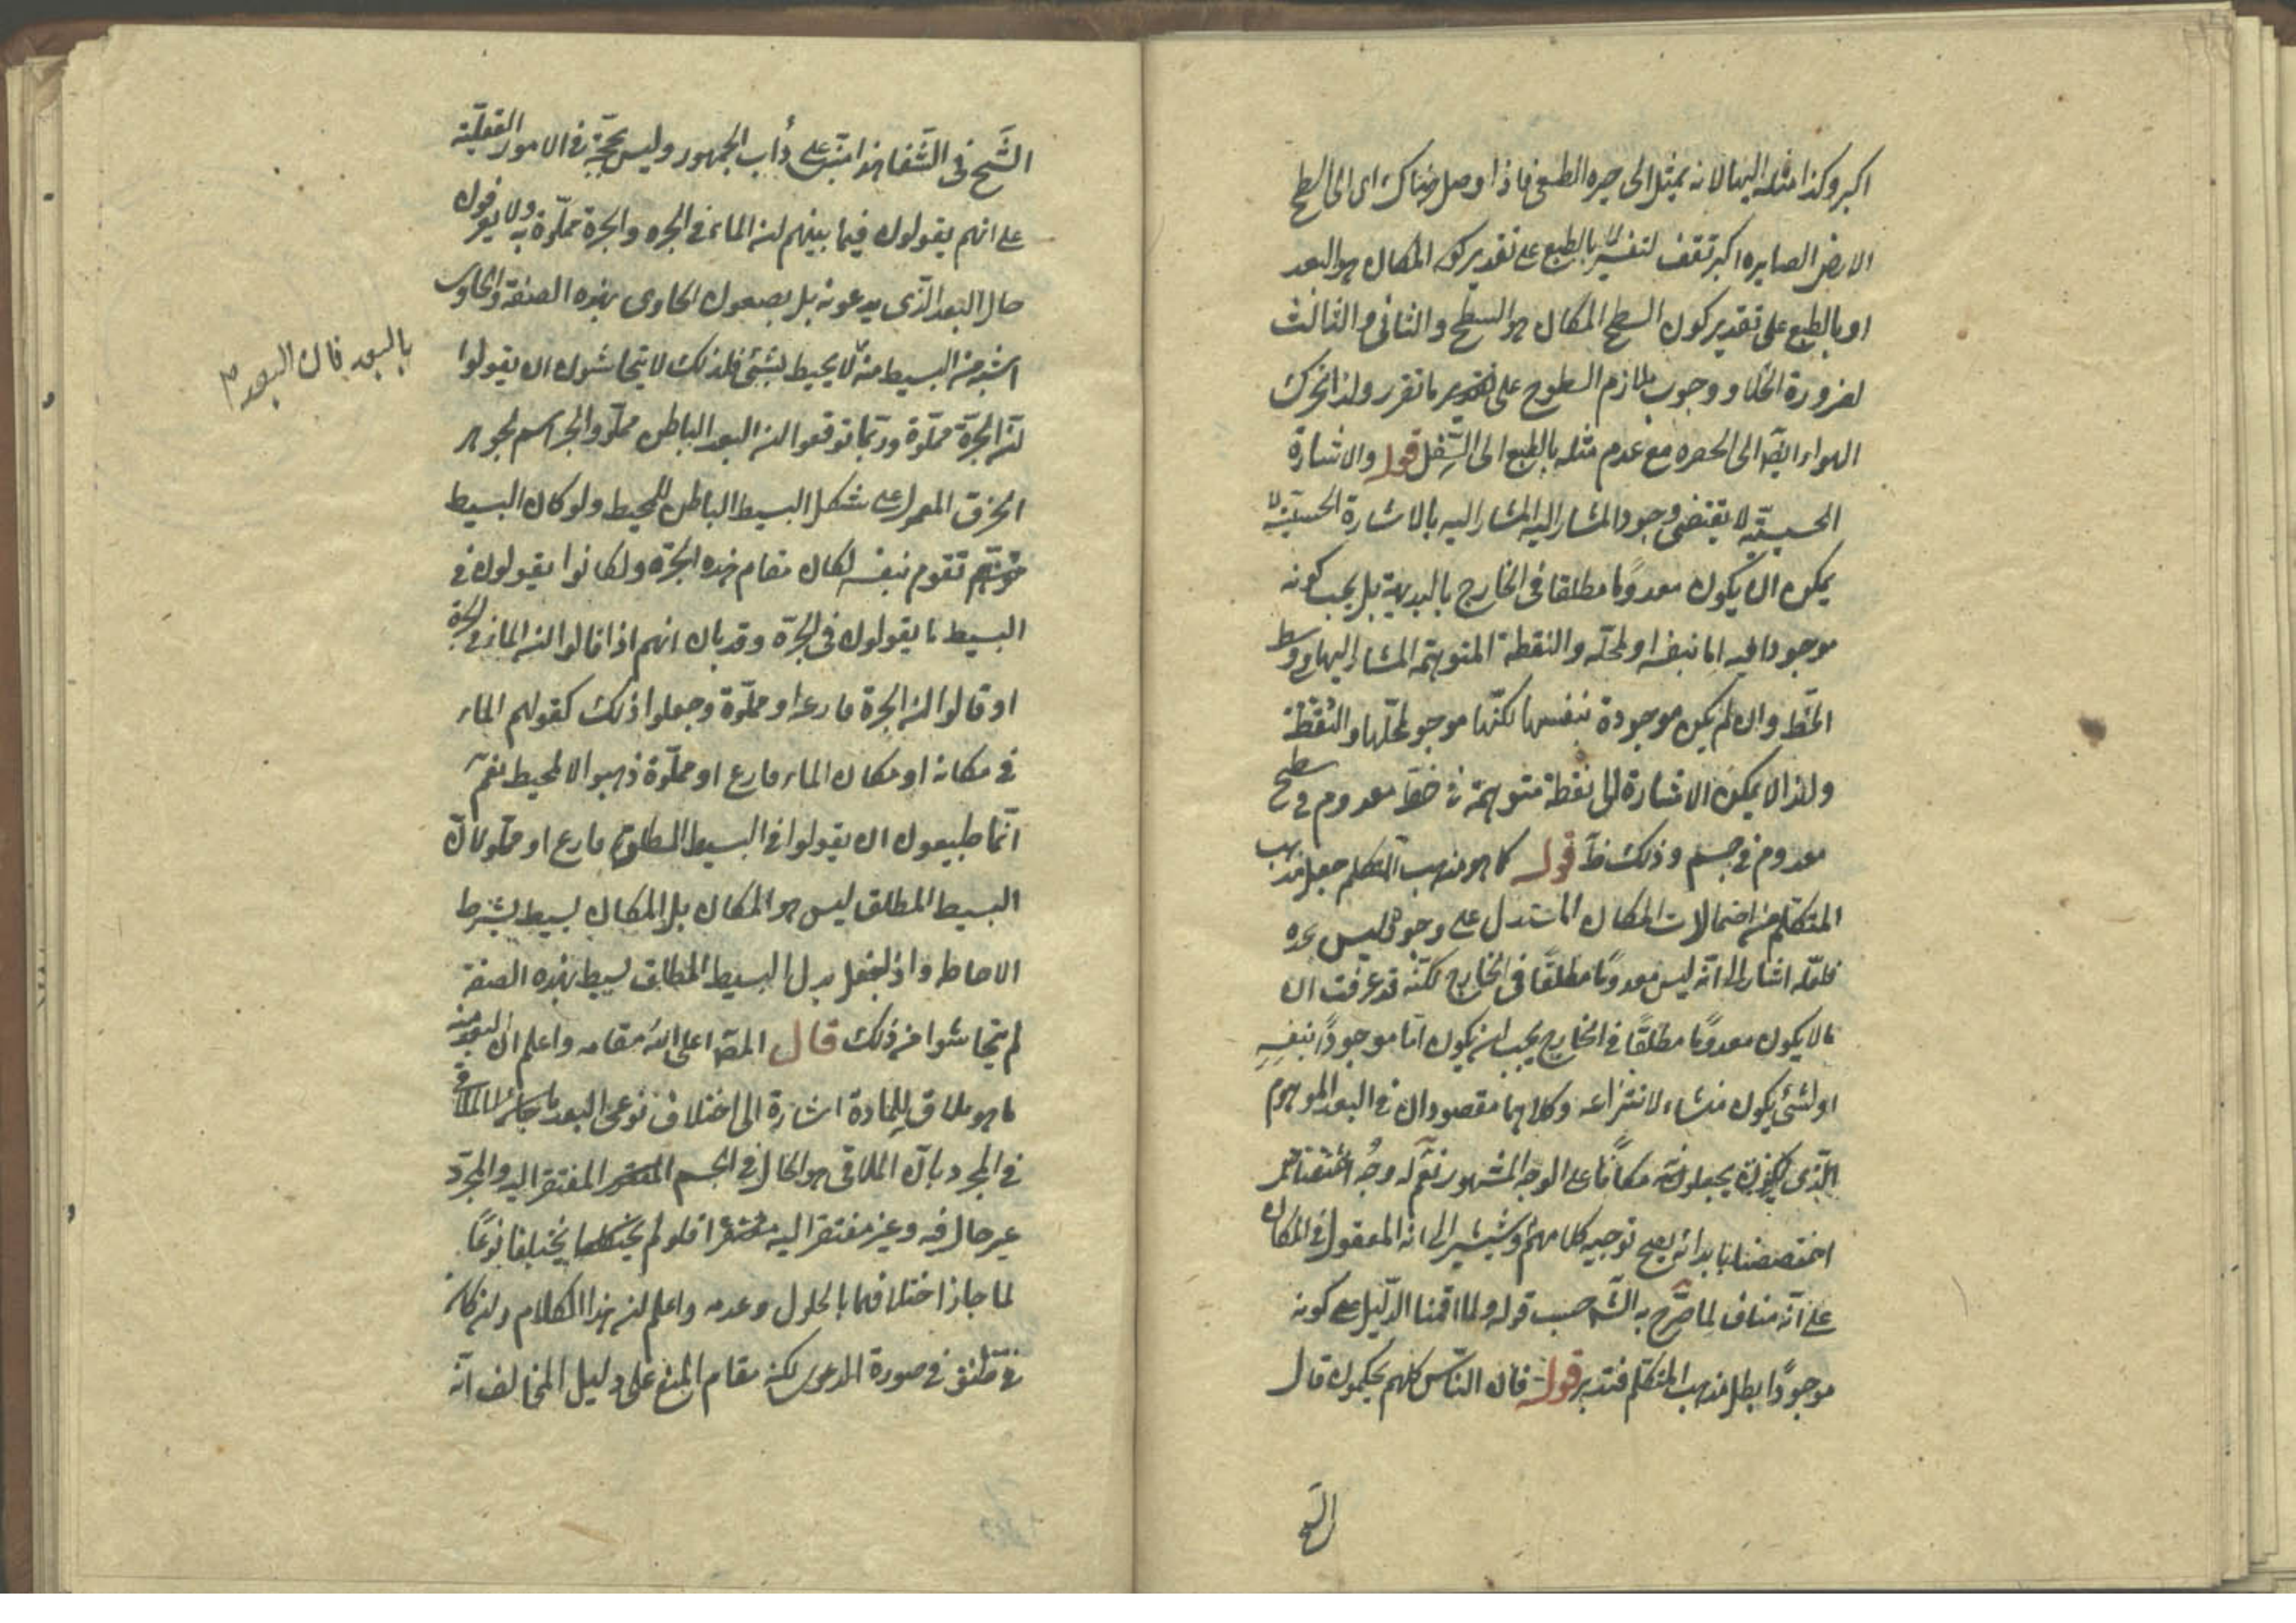 اكبر وكذا مثله اليها لانه يميل الى حيزه الطبعى فاذا وصل هناك اى الى السطح
الارض الصايره اكبر تقف لنفسها بالطبع على تقدير كون المكان هو البعد
او بالطبع على تقدير كون السطح المكان هو السطح والثانى والثالث
لضرورة الخلا ووجوب تلازم السطوح على تقدير ما تقرر ولذا تحرك
الهواء ايضا الى الحفره مع عدم مثله بالطبع الى السفل قوله والاشارة
الحسيّة لا يقتضى وجود المشار اليه المشار اليه بالاشارة الحسيّة لا
يمكن ان يكون معدومًا مطلقا فى الخارج بالبديهة بل يجب كونه
موجودا فيه اما بنفسه او لمحلّه والنقطة المتوهمة المشار اليها فى وسط
الخط وان لم يكن موجودة بنفسها لكنّها موجو لمحلّها والنقطة
ولذا لا يمكن الاشارة الى نقطة متوهمة فى خط معدوم فى سطح
معدوم فى جسم وذلك ظ قوله كما هو مذهب المتكلم جعل مذهب
المتكلم من احتمالات المكان المستدل على وجوده ليس بجيده
فلعلّه اشار الى انّه ليس معدومًا مطلقًا فى الخارج لكنّه قد عرفت ان
ما لا يكون معدومًا مطلقًا فى الخارج يجب ان يكون امّا موجودًا بنفسِهِ
او لشئ يكون منشاء لانتزاعه وكلاهما مقصودان فى البعد الموهوم
الّذى يجعلونه مكانًا على الوجه المشهور نعم له وجهُ
اختصصنا بابدائه يصح توجيه كلامهم ويشير الى انه المعقول فى المكان
على انّه مناف لما صرّح به الشّ حسب قوله ولما اقمنا الدّليل على كونه
موجودًا بطل مذهب المتكلم فتدبر قوله فان النّاس كلهم يحكمون قال
الشيخ
الشّيخ فى الشّفا هذا مبنى على دأب الجمهور وليس بحجّة فى الامور العقليّة
على انهم يقولون فيما بينهم ان الماء فى الجره والجرة مملوّة به ولا يعرفون
حال البعد الّذى يدعونه بل يصفون الحاوى بهذه الصفة والحاوى
اشبه من البسيط منّه لا يحيط بشئ فلذلك لا يتحاشون ان يقولوا
ان الجرّة مملوة وربّما توقفوا ان البعد الباطن مملوّ والجرّة اسم لجوهر
الخزف المعمول على شكل البسيط الباطن للمحيط ولو كان البسيط
تقوم بنفسه لكان مقام هذه الجرّة ولكانوا يقولون فى
البسيط ما يقولون فى الجرّة وقد بان انهم اذا قالوا ان الماء فى الجرة
او قالوا ان الجرة فارغة او مملوّة وجعلوا ذلك كقولهم الماء
فى مكانه او مكان الماء فارغ او مملوّة ذهبوا الا لمحيط نعم
انّما يقولوا فى البسيط المطلق فارغ او مملو لانّ
البسيط المطلق ليس هو المكان بل المكان بسيط بشرط
الاحاطه واذا جعل بدل البسيط المطلق بسيط بهذه الصفة
لم يتحاشوا من ذلك قال المصّ اعلى اللّه مقامه واعلم ان البعد منه
ما هو ملاق للمادة اشارة الى اختلاف نوعى البعد
فى المجرد بانّ الملاقى هو الحال فى الجسم المفتقر اليه والمجرّد
غير حال فيه وغير مفتقر اليه فلو لم يختلفا نوعًا
لما جاز اختلافهما بالحلول وعدمه واعلم ان هذا الكلام وان كان
فى صورة المدعى لكنه مقام المنع على دليل المخالف انّه
بالبعد فان البعد م